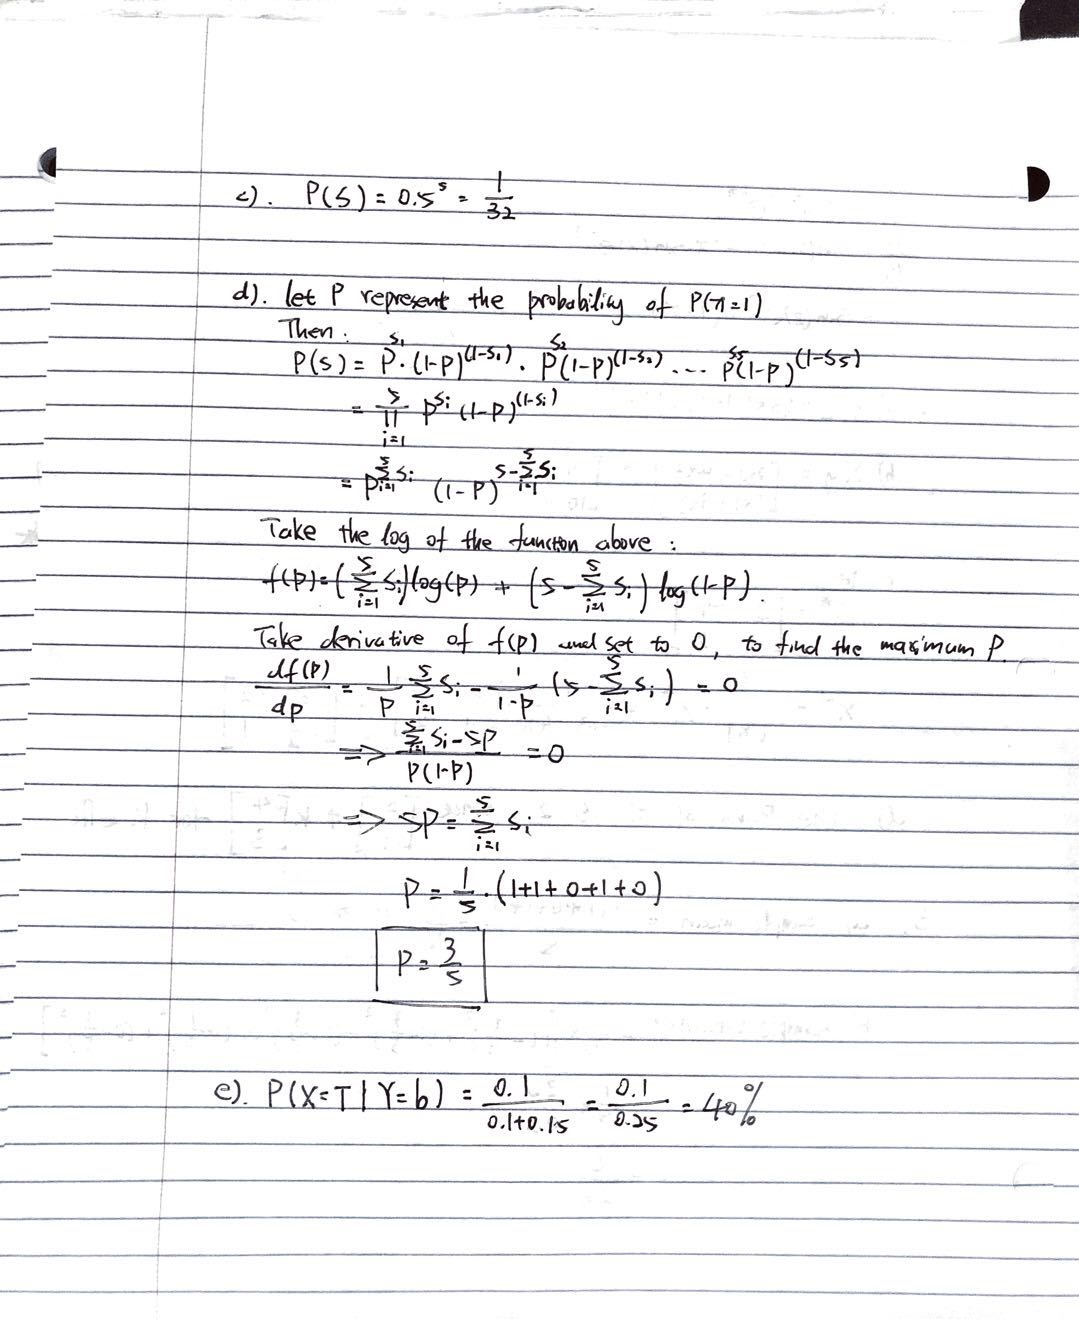 c). P(S) = 0.5^5 = 1/32
d). let P represent the probability of P(x=1)
Then:
P(s) = P^{s_1}·(1-P)^{(1-s_1)} · P^{s_2}(1-P)^{(1-s_2)} ... P^{s_5}(1-P)^{(1-s_5)}
= ∏_{i=1}^{5} P^{s_i} (1-P)^{(1-s_i)}
= P^{∑_{i=1}^{5} s_i} (1-P)^{5-∑_{i=1}^{5} s_i}
Take the log of the function above :
f(p) = (∑_{i=1}^{5} s_i) log(p) + (5 - ∑_{i=1}^{5} s_i) log(1-P).
Take derivative of f(p) and set to 0, to find the maximum P.
df(p)/dp = 1/P ∑_{i=1}^{5} s_i - 1/(1-p) (5 - ∑_{i=1}^{5} s_i) = 0
=> (∑_{i=1}^{5} s_i - 5P)/(P(1-P)) = 0
=> 5P = ∑_{i=1}^{5} s_i
P = 1/5 · (1+1+0+1+0)
P = 3/5
e). P(X=T | Y=b) = 0.1/(0.1+0.15) = 0.1/0.25 = 40%